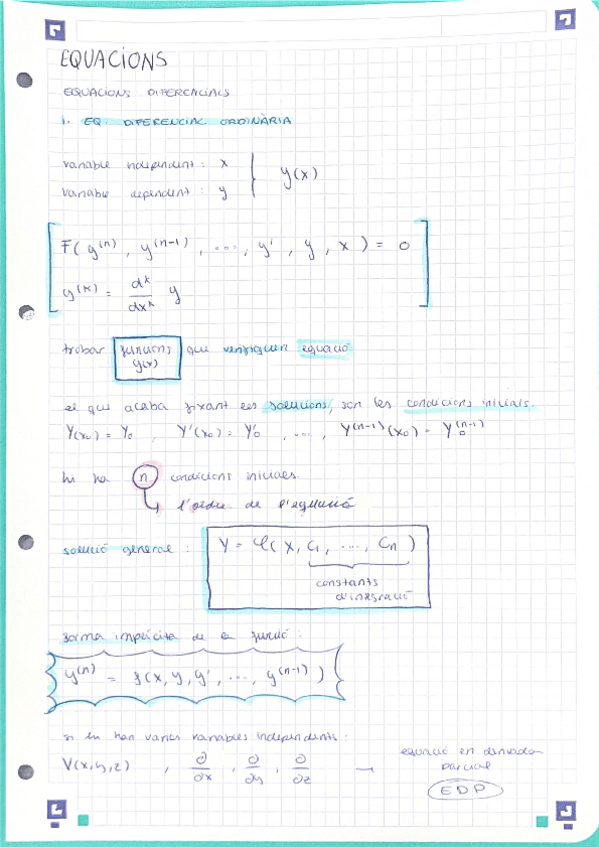 EQUACIONS
EQUACIONS DIFERENCIALS
1. EQ. DIFERENCIAL ORDINÀRIA
variable independent : x
variable dependent : y } y(x)
F( y⁽ⁿ⁾ , y⁽ⁿ⁻¹⁾ , ... , y' , y , x ) = 0
y⁽ᵏ⁾ = dᵏ/dxᵏ y
trobar funcions y(x) que verifiquen equació
el que acaba fixant les solucions, són les condicions inicials.
Y(x₀) = Y₀ , Y'(x₀) = Y'₀ , ... , Y⁽ⁿ⁻¹⁾(x₀) = Y₀⁽ⁿ⁻¹⁾
hi ha n condicions inicials
↳ l'ordre de l'equació
solució general : Y = φ( x, C₁, ..., Cₙ )
constants
d'integració
forma implícita de la funció :
y⁽ⁿ⁾ = f(x, y, y', ..., y⁽ⁿ⁻¹⁾ )
si hi han varies variables independents :
V(x,y,z) , ∂/∂x , ∂/∂y , ∂/∂z → equació en derivada
parcial
EDP